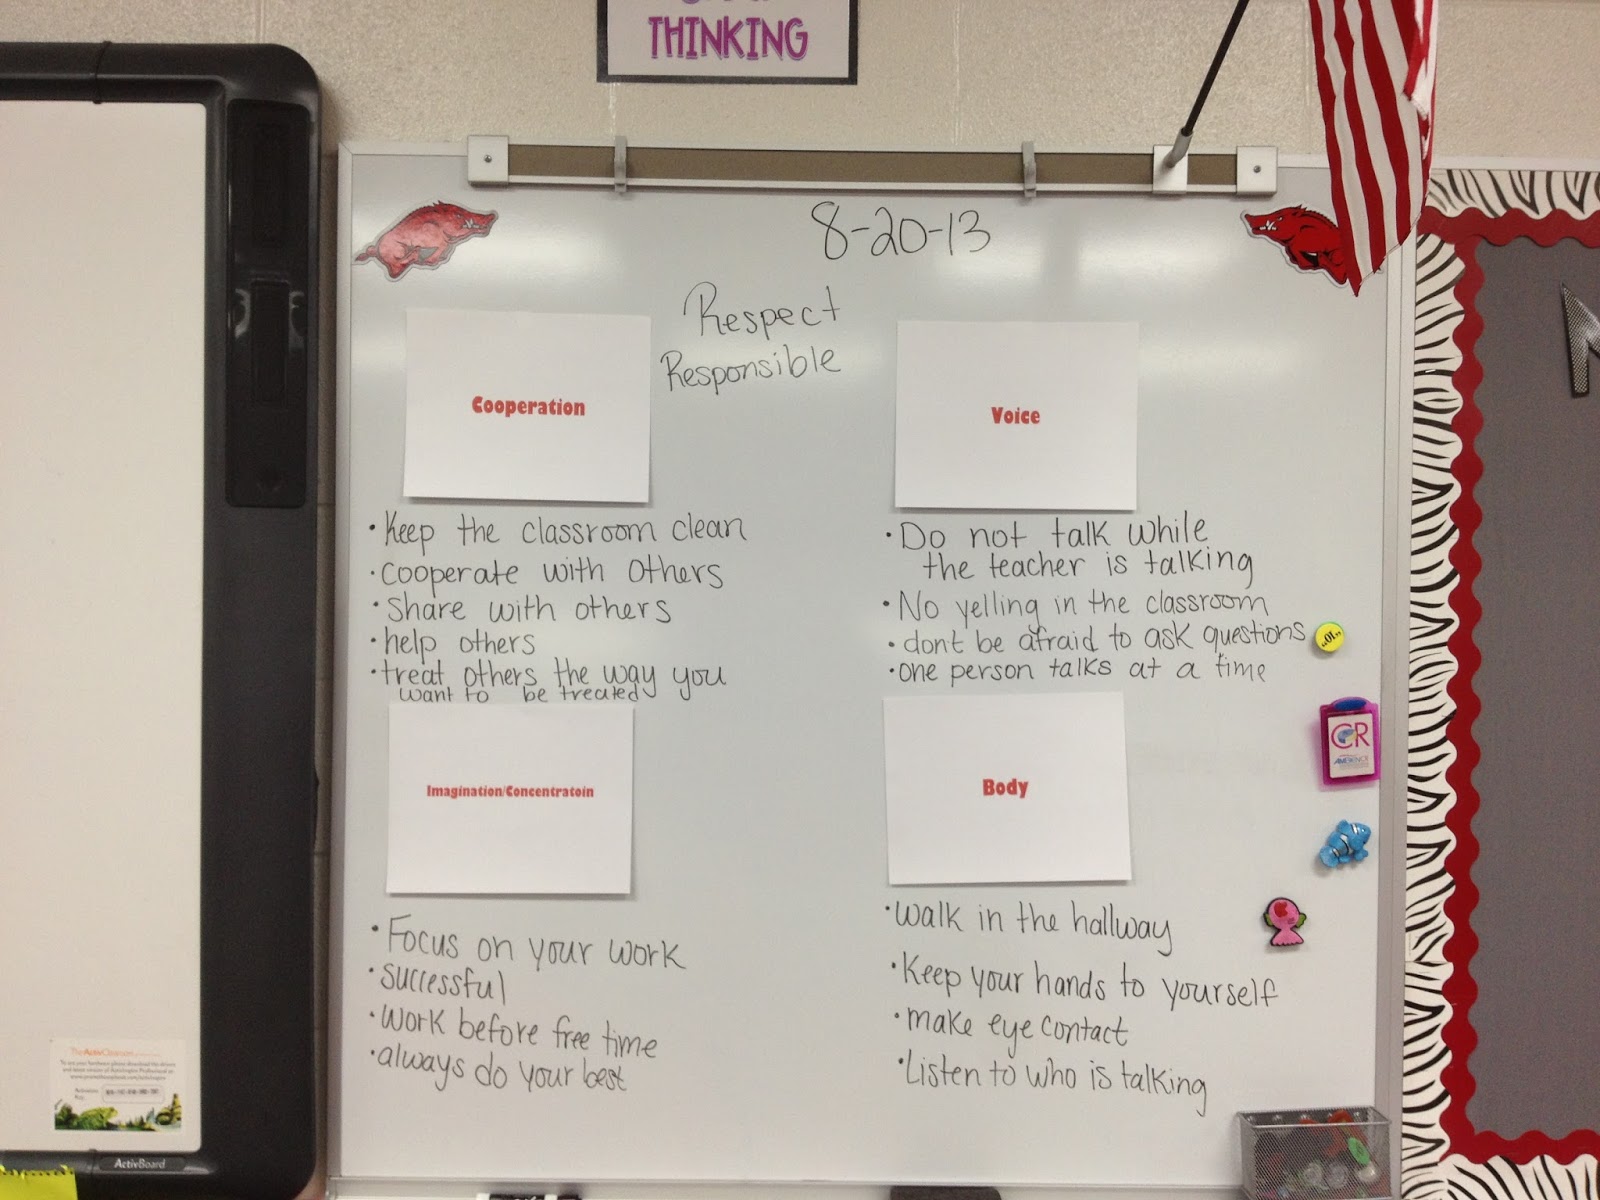 THINKING
8-20-13
Respect
Responsible
Cooperation
• Keep the classroom clean
• Cooperate with others
• Share with others
• help others
• treat others the way you
want to be treated
Voice
• Do not talk while
the teacher is talking
• No yelling in the classroom
• dont be afraid to ask questions
• one person talks at a time
Imagination/Concentratoin
• Focus on your work
• successful
• work before free time
• always do your best
Body
• walk in the hallway
• Keep your hands to yourself
• make eye contact
• Listen to who is talking
ActivBoard